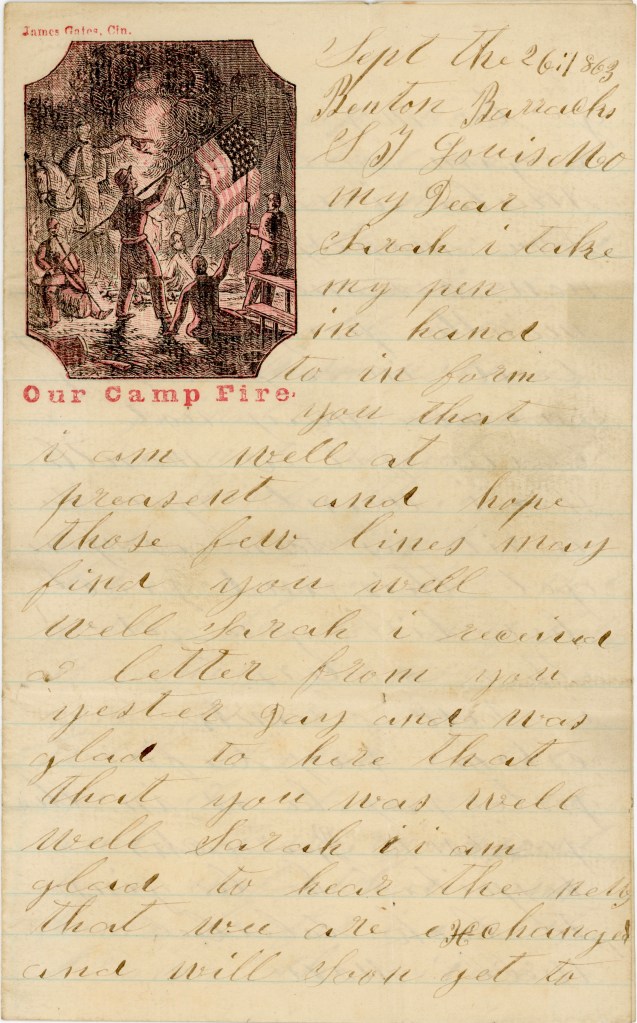 James Gates, Cin.
Sept the 26th 1863
Benton Barracks
S T Louis Mo
my Dear
Sarah i take
my pen
in hand
to in form
you that
Our Camp Fire
i am well at
preasent and hope
those few lines may
find you well
well Sarah i received
a letter from you
yester Day and was
glad to here that
that you was well
well Sarah i i am
glad to hear the news
that we are exchanged
and will soon get to